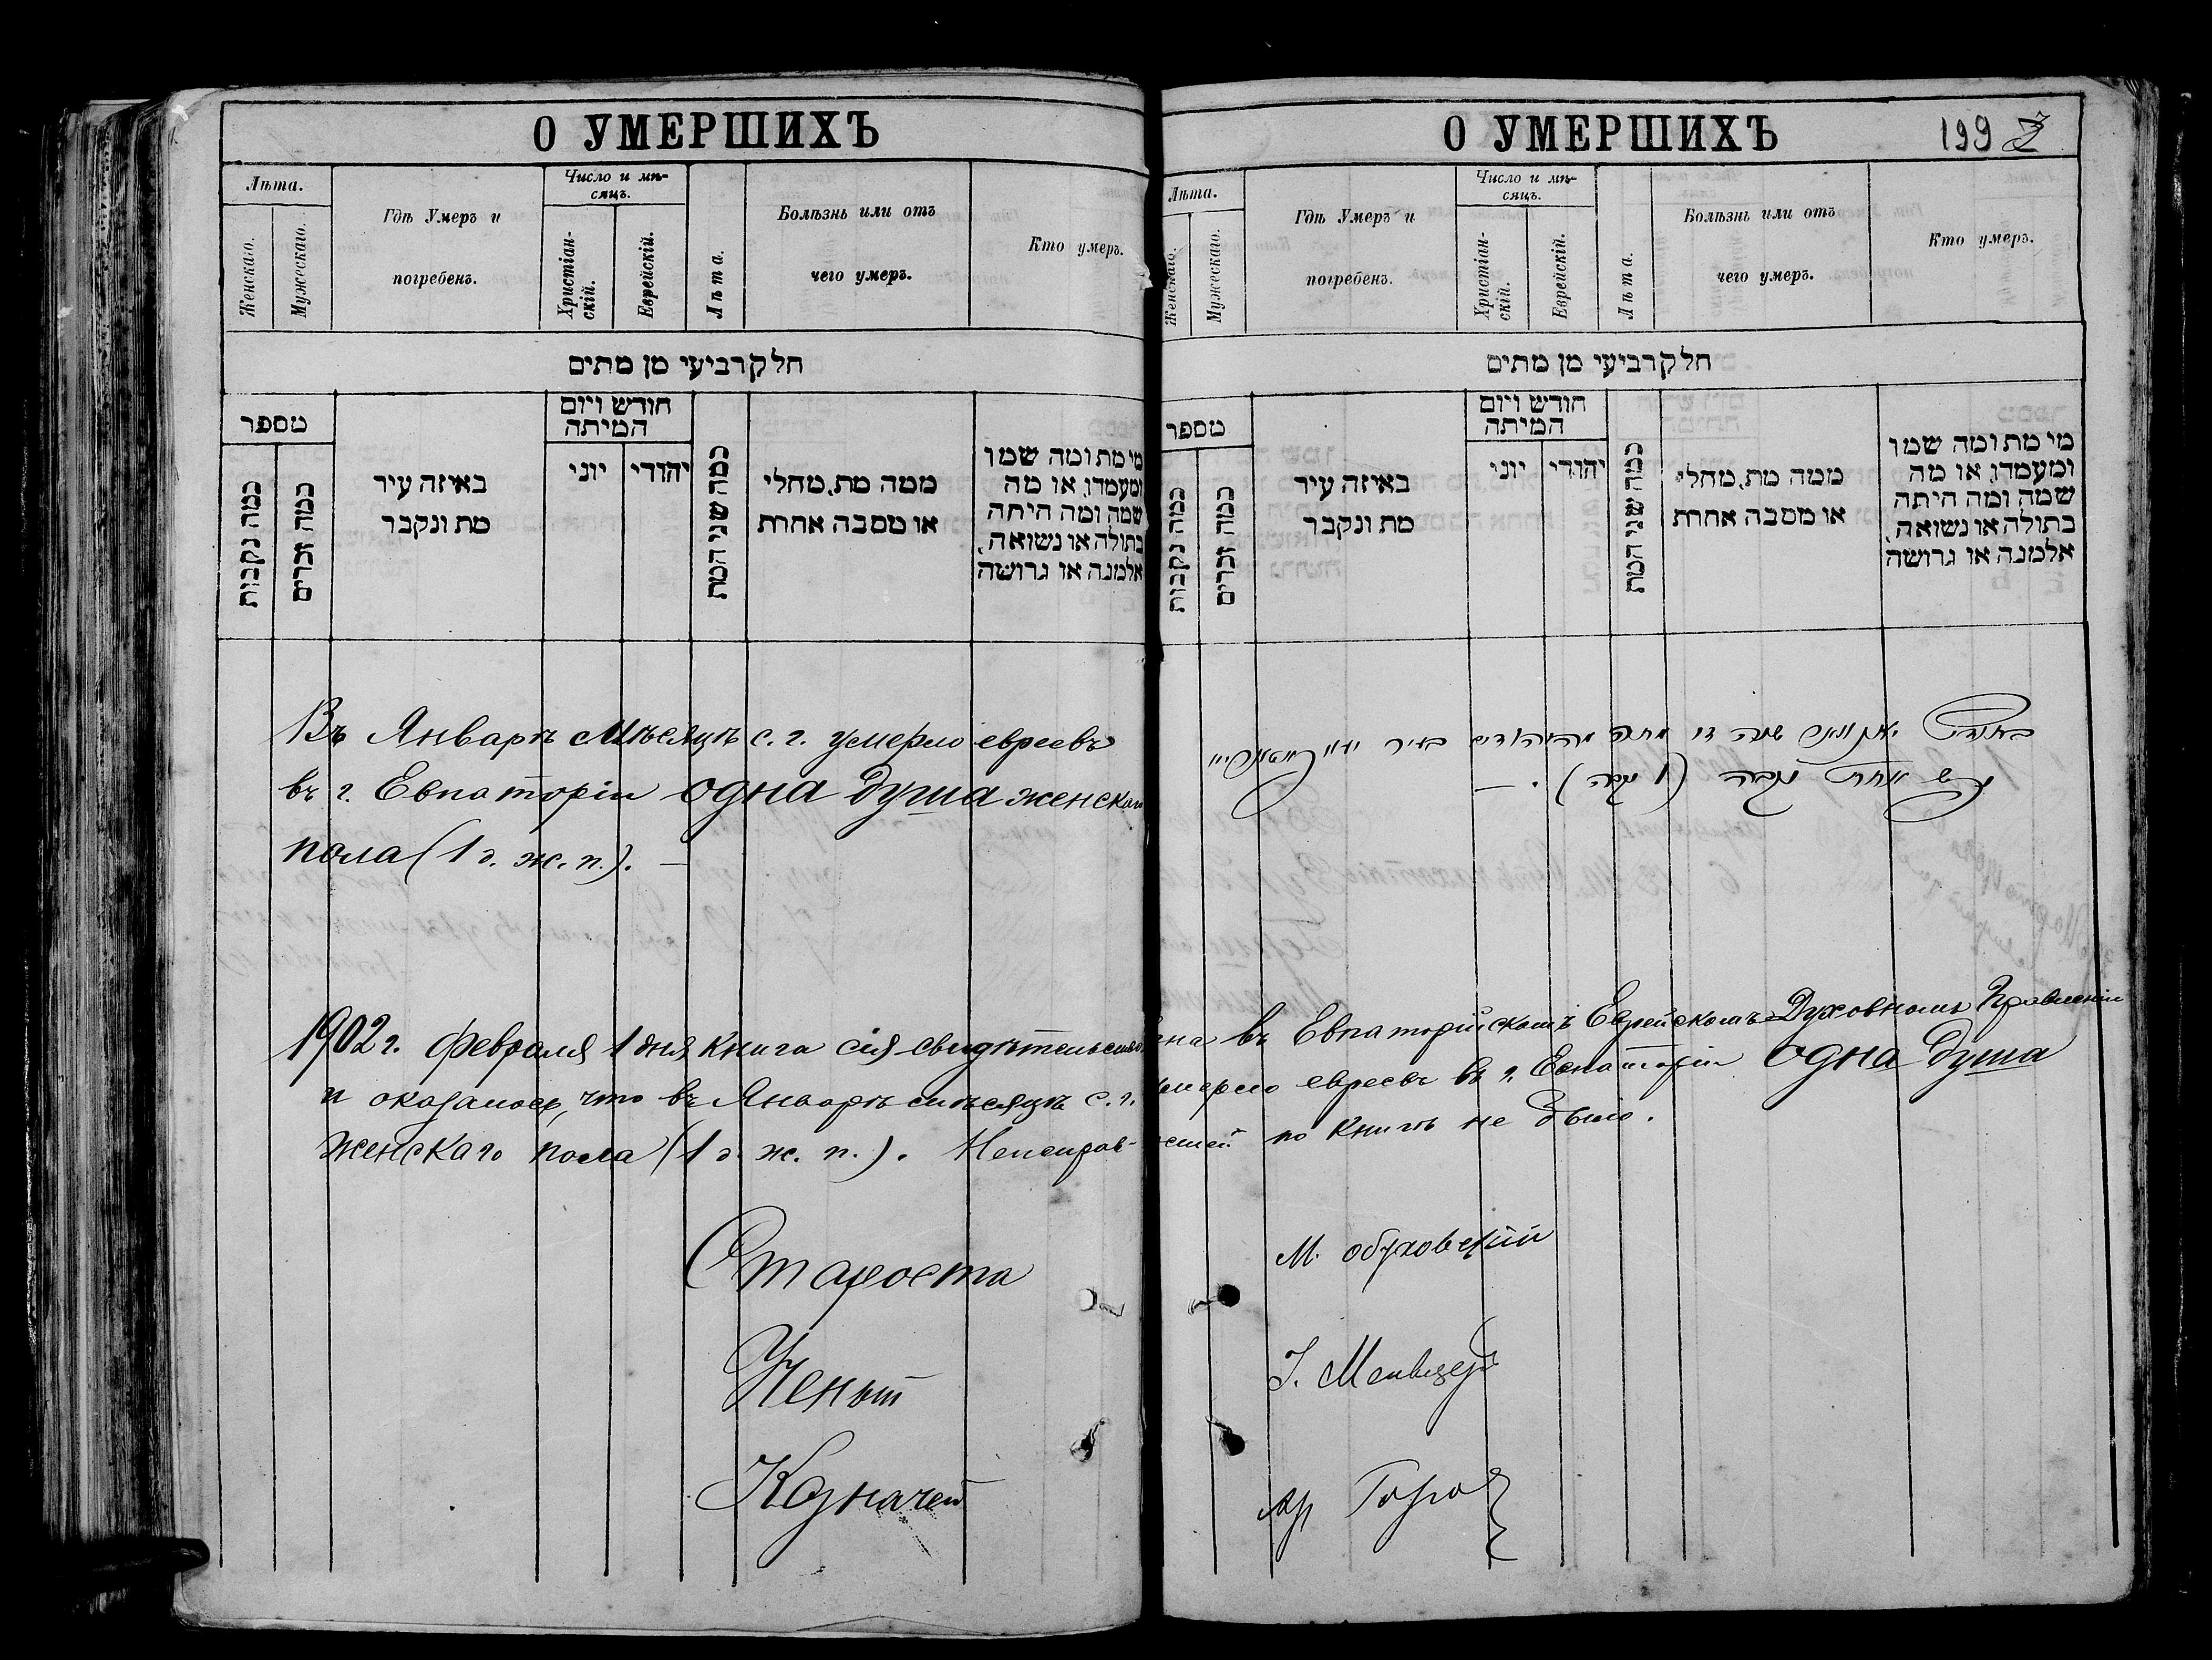 О УМЕРШИХЪ
Лѣта.
Женскаго.
Мужескаго.
Гдѣ Умеръ и
погребенъ.
Число и мѣ-
сяцъ.
Христіан-
скій.
Еврейскій.
Лѣта.
Болѣзнь или отъ
чего умеръ.
Кто умеръ.
חלק רביעי מן מתים
מספר
כמה נקבות
כמה זכרים
באיזה עיר
מת ונקבר
חודש ויום
המיתה
יוני
יהודי
כמה שני המת
ממה מת, מחלי
או מסבה אחרת
מי מת ומה שמו
ומעמדו, או מה
שמה ומה היתה
בתולה או נשואה,
אלמנה או גרושה
Въ Январѣ Мѣсяцѣ с. г. умерло евреевъ
въ г. Евпаторіи одна душа женскаго
пола (1 д. ж. п.). —
О УМЕРШИХЪ
199
Лѣта.
Женскаго.
Мужескаго.
Гдѣ Умеръ и
погребенъ.
Число и мѣ-
сяцъ.
Христіан-
скій.
Еврейскій.
Лѣта.
Болѣзнь или отъ
чего умеръ.
Кто умеръ.
חלק רביעי מן מתים
מספר
כמה נקבות
כמה זכרים
באיזה עיר
מת ונקבר
חודש ויום
המיתה
יוני
יהודי
כמה שני המת
ממה מת, מחלי
או מסבה אחרת
מי מת ומה שמו
ומעמדו, או מה
שמה ומה היתה
בתולה או נשואה,
אלמנה או גרושה
בחודש שנה זו מתה מהיהודים בעיר
נפש אחת נקבה (1 נקבה). —
1902 г. Февраля 1 дня книга сія свидѣтельствована въ Евпаторійскомъ Еврейскомъ Духовномъ Правленіи
и оказалось, что въ Январѣ мѣсяцѣ с. г. умерло евреевъ въ г. Евпаторіи одна душа
женскаго пола (1 д. ж. п.). Неисправ-ностей по книгѣ не было.
Староста М. Обуховскій
Ученый І.
Казначей